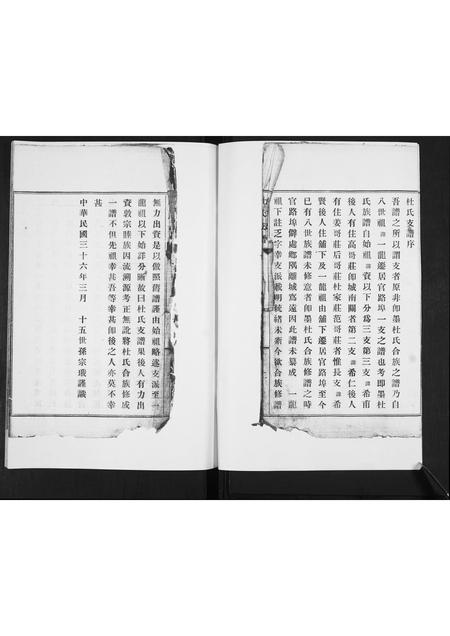 杜氏支譜序
吾譜之所以謂支者原非卽墨杜氏合族之譜乃自
八世祖諱一龍遷居官路埠一支之譜也考卽墨杜
氏族譜自始祖諱資以下分爲三支第三支諱希甫
後人有住高哥莊卽城南關者第二支諱希仁後人
有住姜哥莊后哥莊杜家莊范哥莊者惟長支諱希
賢後人住舖下及一龍祖由舖下遷居官路埠至今
已有八世族譜未修意者卽墨杜氏合族修譜之時
官路埠僻處鄉隅離城寫遠因此譜未纂成一龍
祖下註乏字幸支派載明統緒未紊今欲合族修譜
無力出資是以倣照舊譜謹由始祖略述支派至一
龍祖以下始詳分晰故曰杜氏支譜果後人有力出
資敦宗睦族因流溯源考正無訛將杜氏合族修成
一譜不但先祖幸甚吾等幸甚卽後之人亦莫不幸
甚
中華民國三十六年三月 十五世孫宗珴謹識